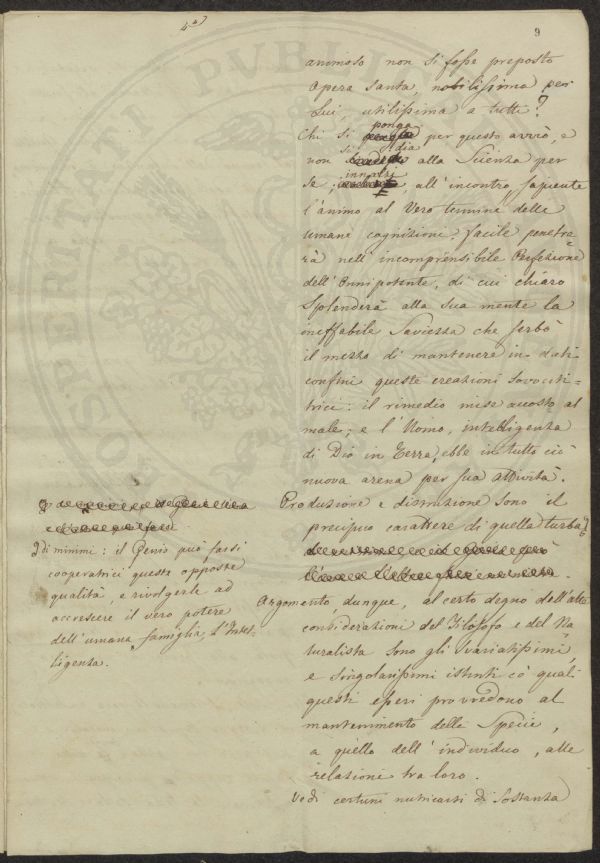 4°
9
animoso non si fosse preposto
opera santa, nobilissima per
Lui, utilissima a tutti?
ponga
Chi si per questo avviò, e
si dia
non alla Scienza per
innalzi
se; all'incontro sapiente
l'animo al Vero termine delle
umane cognizioni, facile penetre-
rà nell'incomprensibile Perfezione
dell'Onnipotente, di cui chiaro
Splenderà alla sua mente la
ineffabile Saviezza che serbò
il mezzo di mantenere in dati
confini queste creazioni
trici: il rimedio mise accosto al
male; e l'Uomo, intelligenza
di Dio in Terra, ebbe in tutto ciò
nuova arena per sua attività.
Produzione e distruzione sono il
precipuo carattere di quella turba
di minimi: il Genio può farsi
cooperatrici queste opposte
qualità, e rivolgerle ad
accrescere il vero potere
dell'umana famiglia, l'Intel-
ligenza.
Argomento dunque, al certo degno dell'alte
considerazioni del Filosofo e del Na-
turalista sono gli svariatissimi,
e singolarissimi istinti co' quali
questi esseri provvedono al
mantenimento delle Specie,
a quello dell'individuo, alle
relazioni tra loro.
Vedi certuni nutricarsi di Sostanza